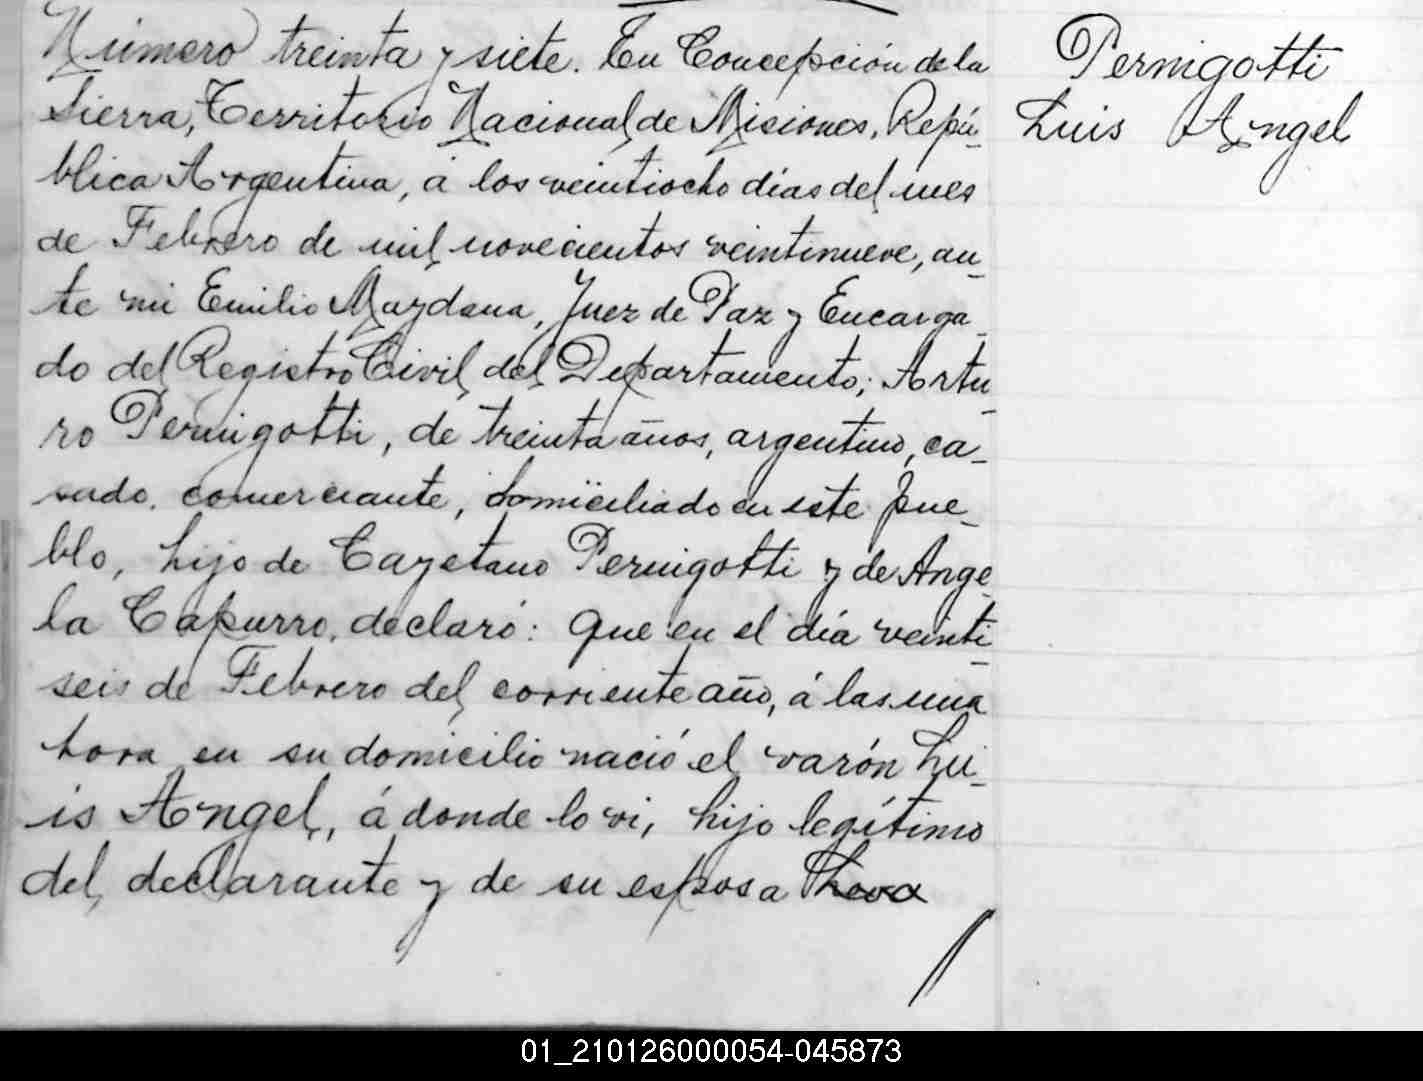 Número treinta y siete. En Concepción de la
Sierra, Territorio Nacional, de Misiones, Repú-
blica Argentina, á los veintiocho días del mes
de Febrero de mil novecientos veintinueve, an-
te mi Emilio Maydana, Juez de Paz y Encarga-
do del Registro Civil, del Departamento; Artu-
ro Pernigotti, de treinta años, argentino, ca-
sado, comerciante, domiciliado en este pue-
blo, hijo de Cayetano Pernigotti y de Ange-
la Capurro, declaró: Que en el día veinti-
seis de Febrero del corriente año, á las una
hora en su domicilio nació el varón Lu-
is Angel, á donde lo vi, hijo legítimo
del declarante y de su esposa
Pernigotti
Luis Angel
01_210126000054-045873